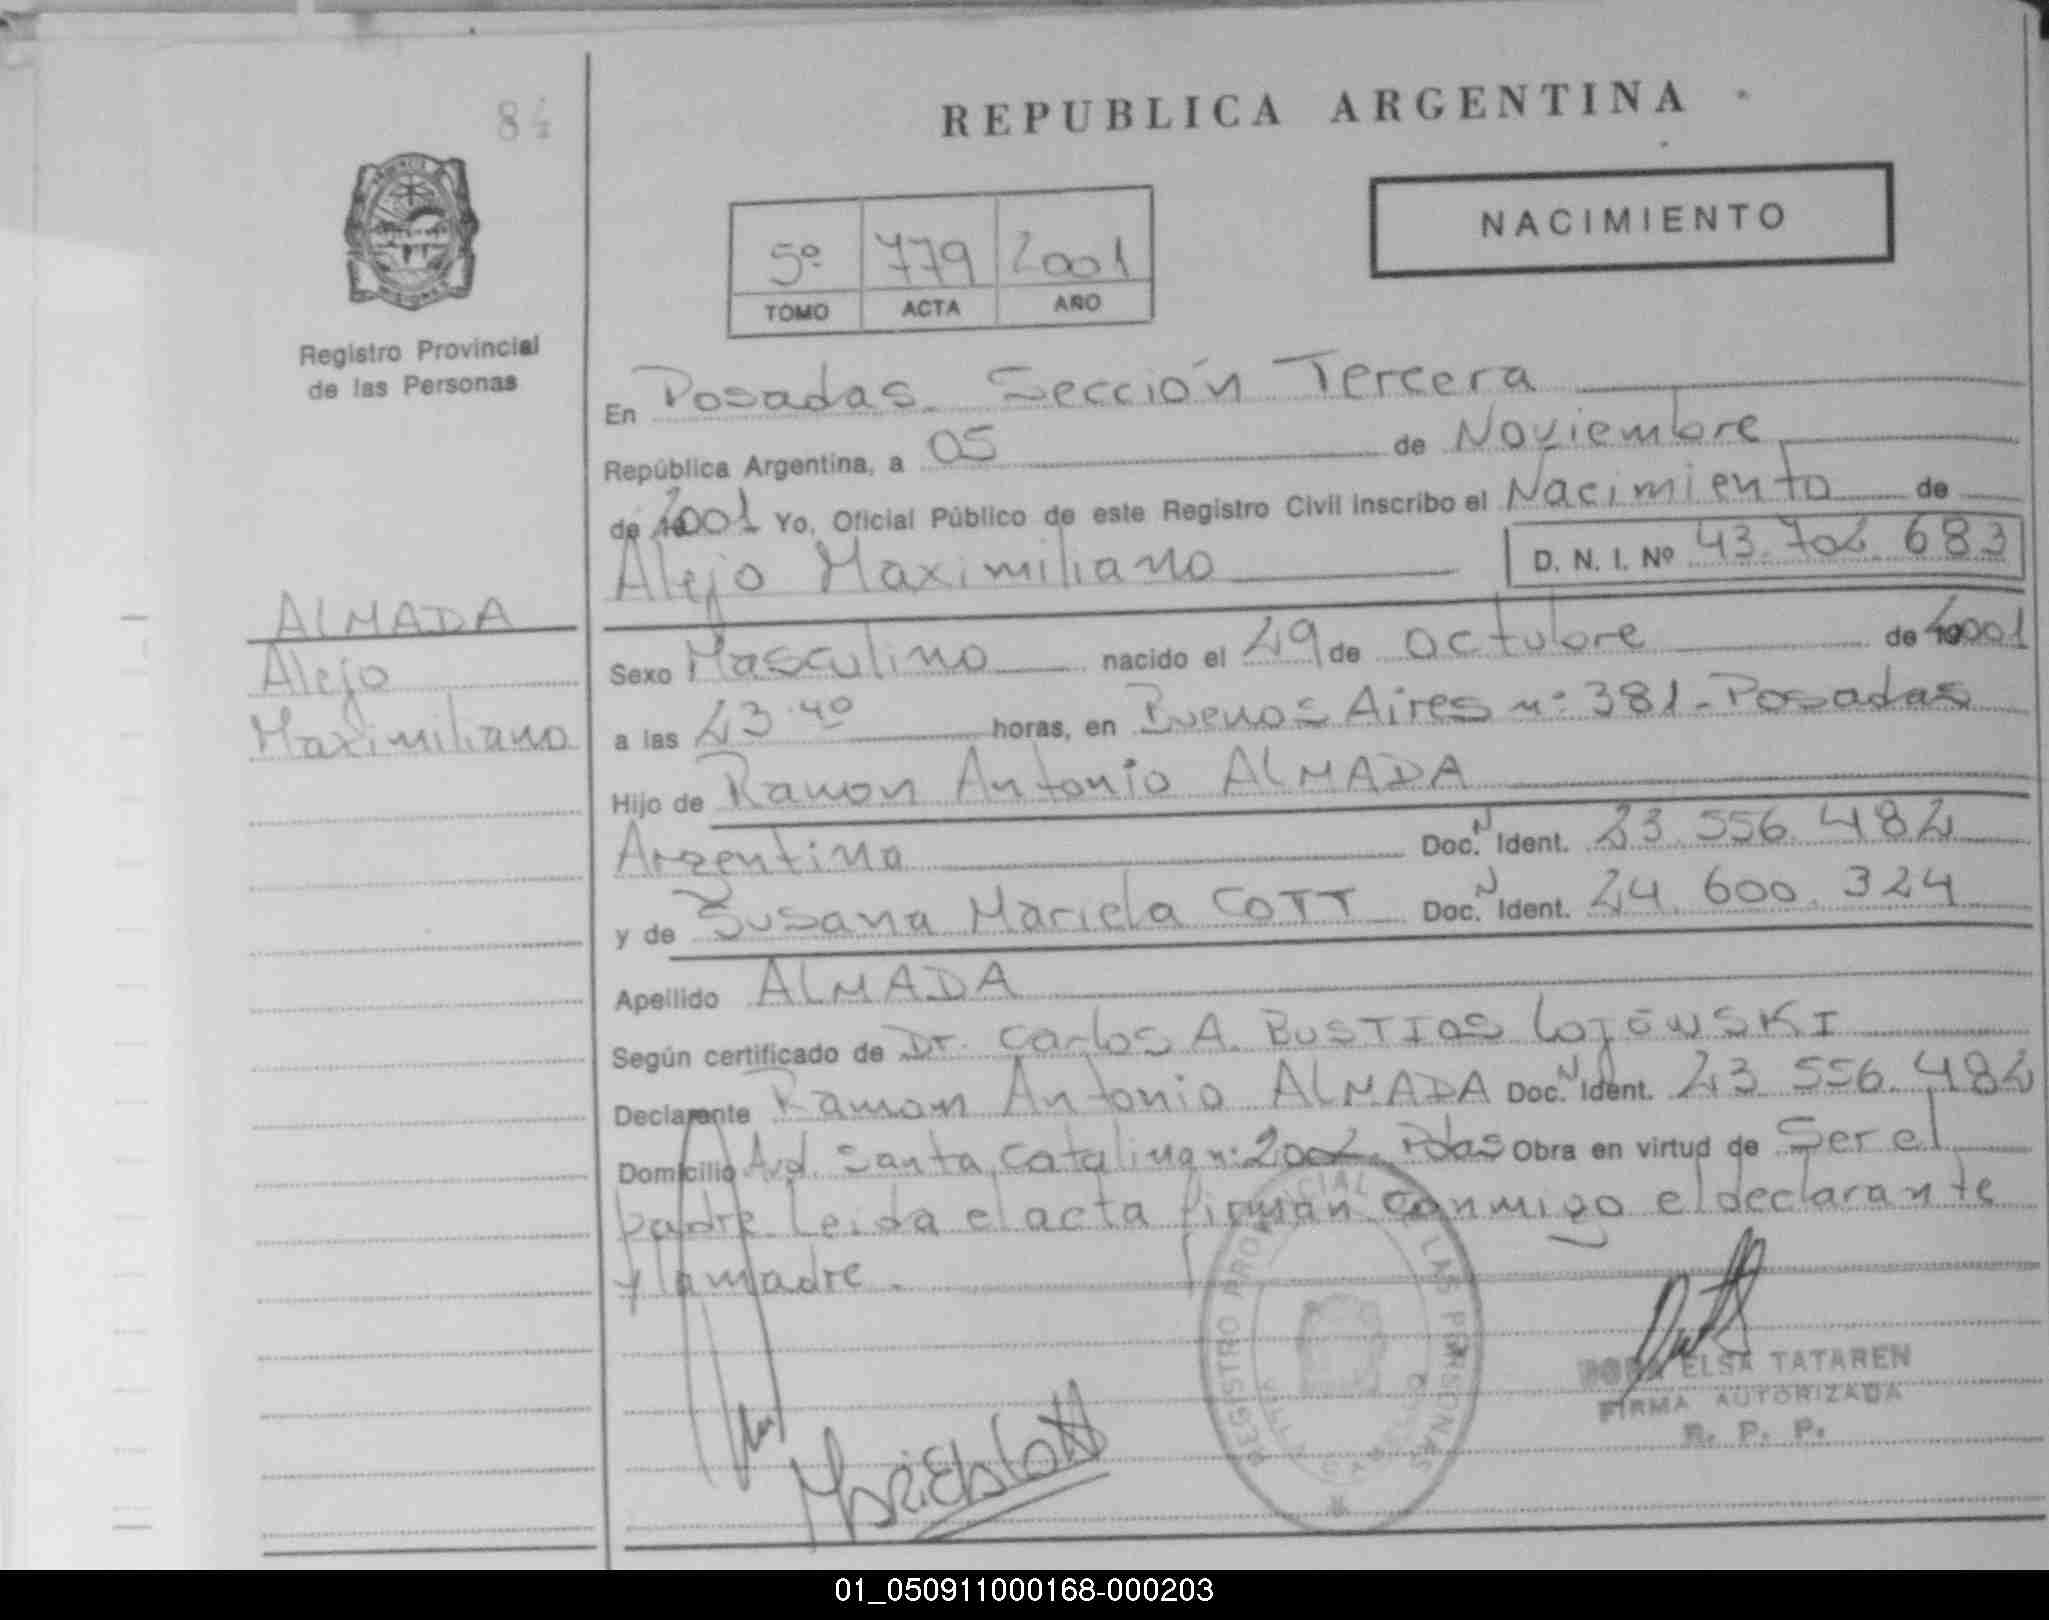 84
REPUBLICA ARGENTINA
NACIMIENTO
5º 779 2001
TOMO ACTA AÑO
Registro Provincial
de las Personas
En Posadas. Sección Tercera
República Argentina, a 05 de Noviembre
de 2001 Yo, Oficial Público de este Registro Civil inscribo el Nacimiento de
Alejo Maximiliano D. N. I. Nº 43.702.683
ALMADA
Alejo
Maximiliano
Sexo Masculino nacido el 29 de octubre de 2001
a las 23.40 horas, en Buenos Aires nº 381 - Posadas
Hijo de Ramon Antonio ALMADA
Argentina Doc. N Ident. 23.556.482
y de Susana Mariela COTT Doc. N Ident. 24.600.324
Apellido ALMADA
Según certificado de Dr. Carlos A. BUSTIOS LOJEWSKI
Declarante Ramon Antonio ALMADA Doc. N Ident. 23.556.482
Domicilio Avd. Santa Catalina nº 2002. Pdas Obra en virtud de Ser el
padre Leida el acta firman conmigo el declarante
y la madre.
REGISTRO PROVINCIAL DE LAS PERSONAS
VILLA CABELLO
ELSA TATAREN
FIRMA AUTORIZADA
R. P. P.
01_050911000168-000203